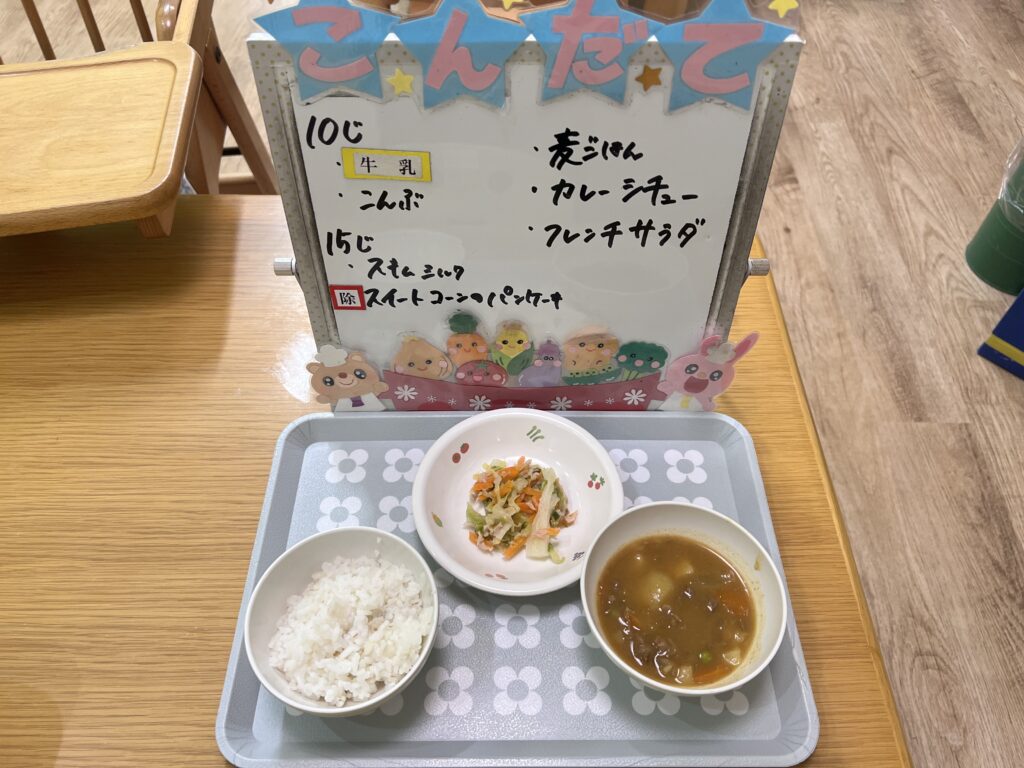 こんだて
10じ
・牛乳
・こんぶ
15じ
・スキムミルク
除 スイートコーンのパンケーキ
・麦ごはん
・カレーシチュー
・フレンチサラダ